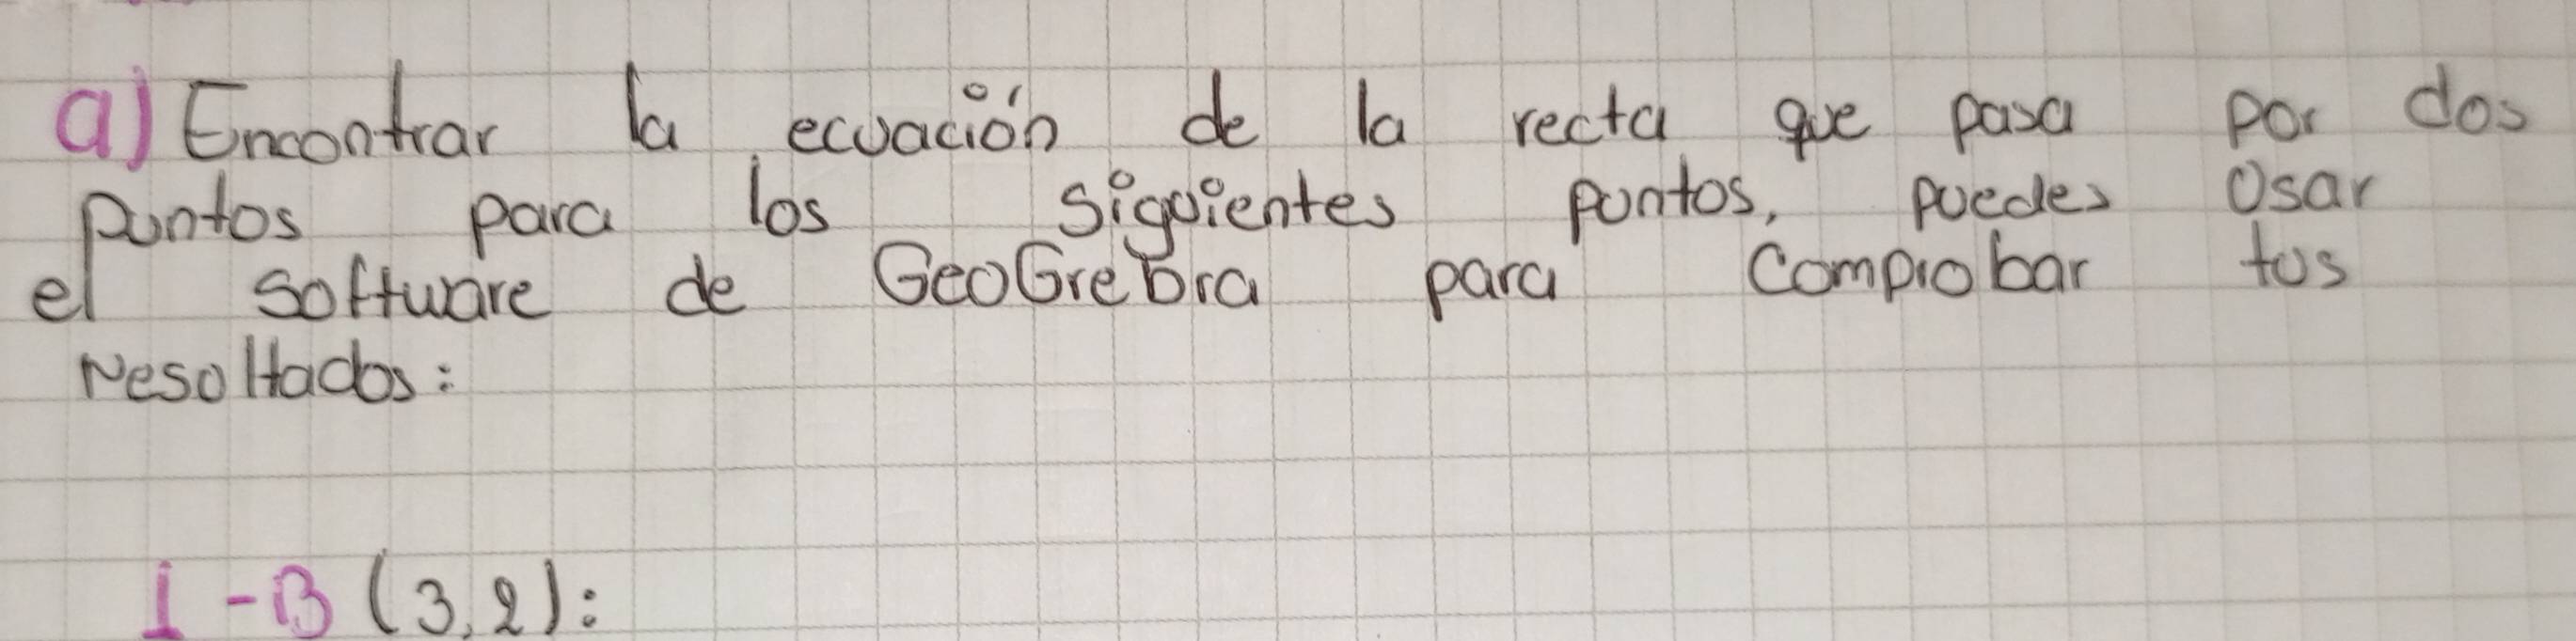 a) Encontrar la ecuación de la recta que pasa por dos
puntos para los siguientes puntos, puedes usar
el software de GeoGrebra para comprobar tus
resultados:
1-B (3,2):